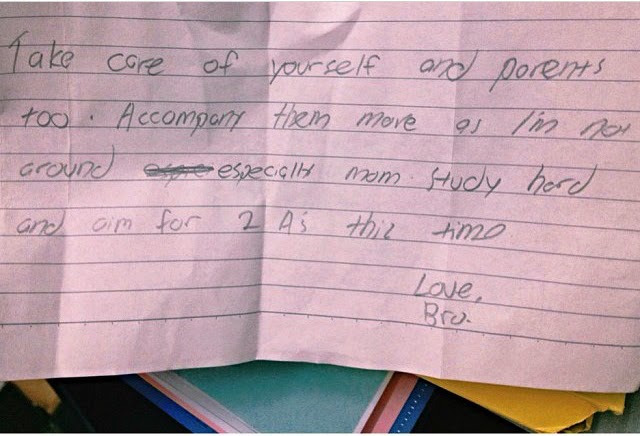 Take care of yourself and parents
too. Accompany them more as I'm not
around especially mom. Study hard
and aim for 2 A's this time
Love,
Bro.